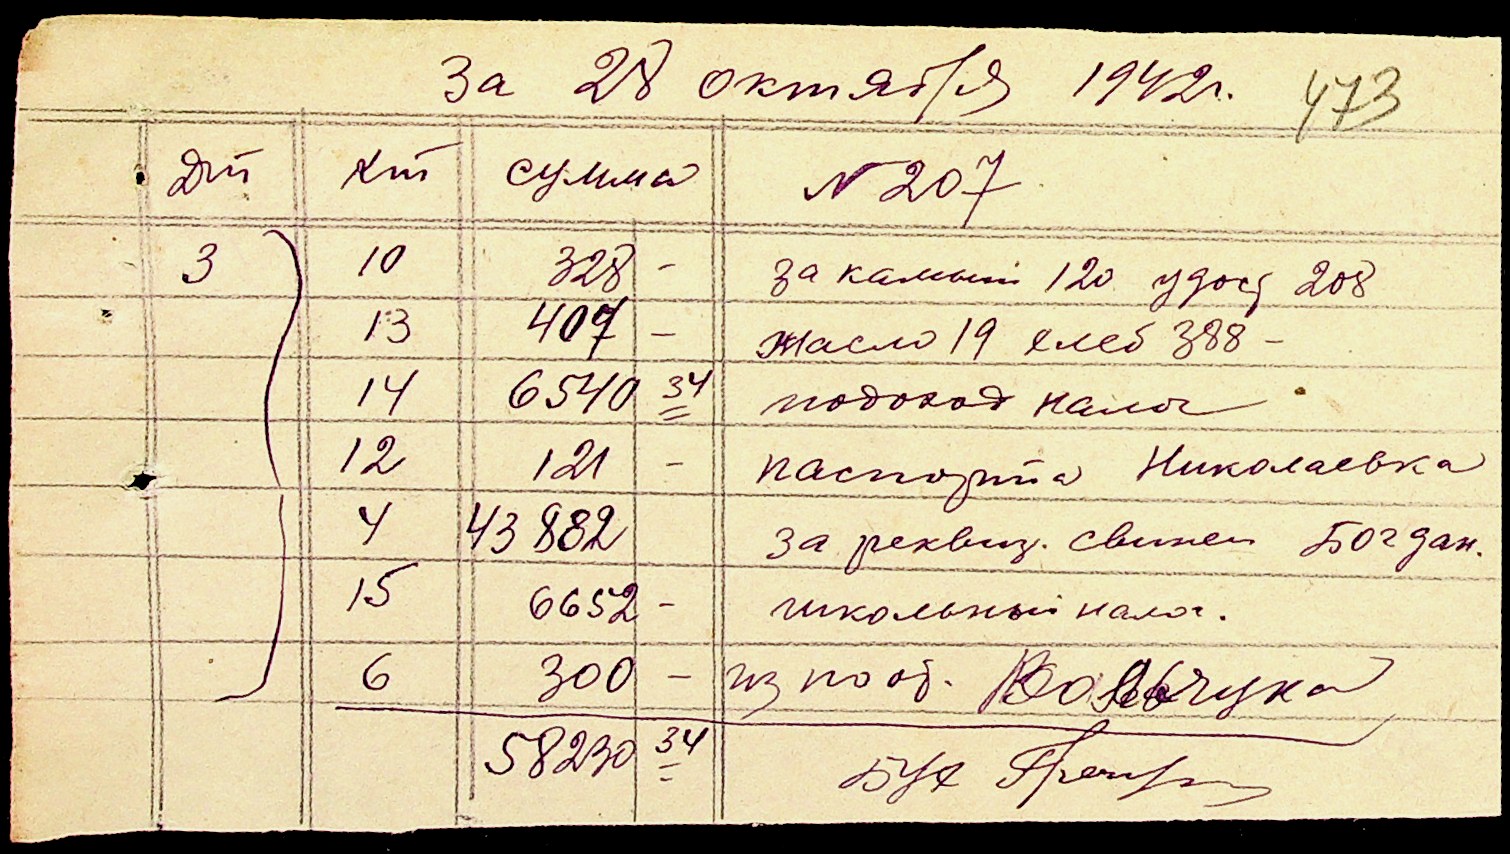 За 28 октября 1942г. 473
Дт Кт сумма N 207
3 10 328 - за камыш 120 удост 208
13 407 - масло 19 хлеб 388 -
14 6540 34 подоход налог
12 121 - паспорта Николаевка
4 43882 за реквиз. свиней Богдан.
15 6652 - школьный налог.
6 300 - из по об. Вовчука
58230 34 Бух